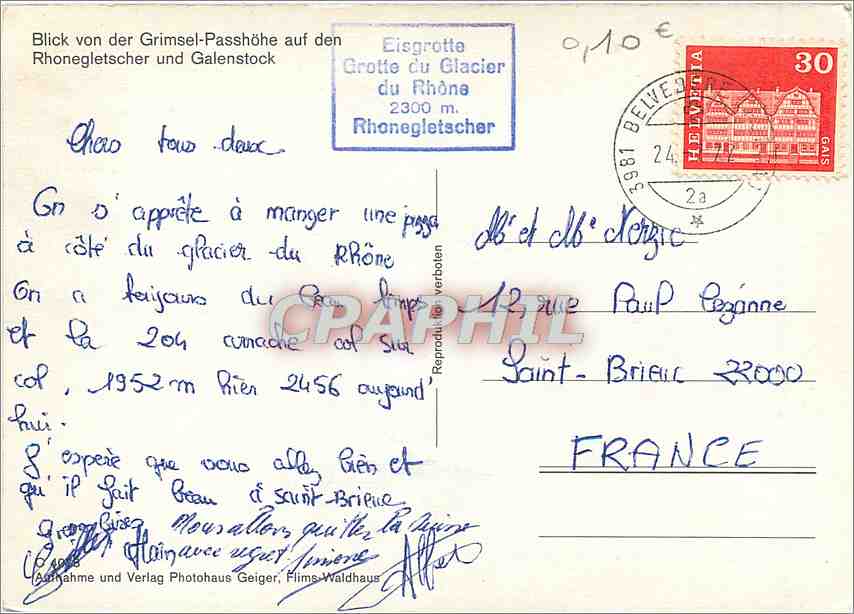 Blick von der Grimsel-Passhöhe auf den
Rhonegletscher und Galenstock
Eisgrotte
Grotte du Glacier
du Rhône
2300 m.
Rhonegletscher
0,10 €
HELVETIA
30
GAIS
3981 BELVEDERE
24.
72
2a
Chers tous deux
On s'apprête à manger une pizza
à côté du glacier du Rhône
On a toujours du beau temps
et la 204 arrache col sur
col, 1952 m hier 2456 aujourd'
hui.
J'espère que vous allez bien et
qu'il fait beau à Saint-Brieuc
Grosses bises Nous allons quitter la Suisse
Alain avec regret Simone
Mr et Mme Nerzic
12 rue Paul Cézanne
Saint-Brieuc 22000
FRANCE
Reproduktion verboten
CPAPHIL
Aufnahme und Verlag Photohaus Geiger, Flims-Waldhaus